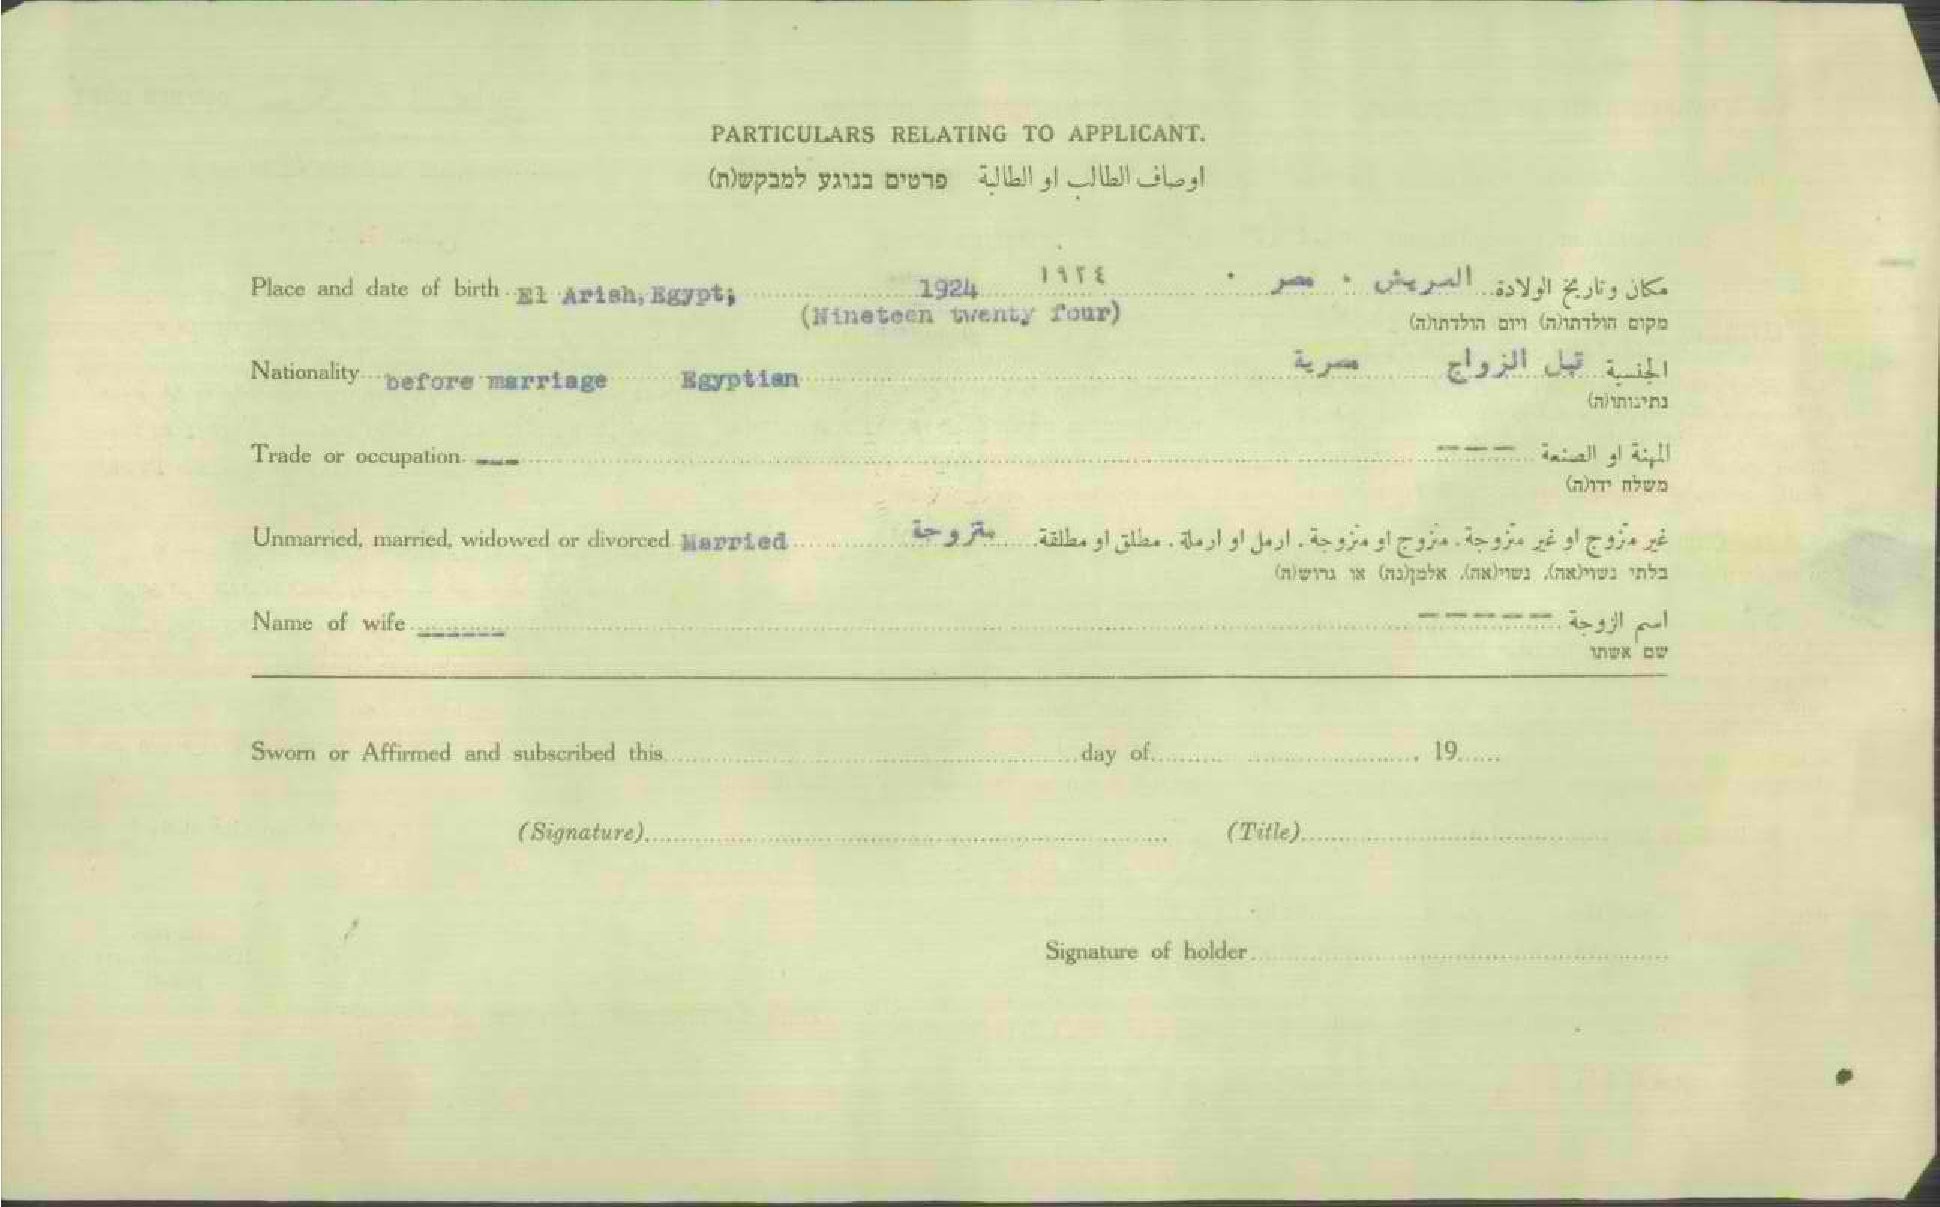 PARTICULARS RELATING TO APPLICANT.
اوصاف الطالب او الطالبة פרטים בנוגע למבקש(ת)
Place and date of birth El Arish, Egypt; 1924 ١٩٢٤ العريش ٠ مصر ٠ مكان وتاريخ الولادة
(Nineteen twenty four) מקום הולדתו(ה) ויום הולדתו(ה)
Nationality before marriage Egyptian الجنسية قبل الزواج مصرية
נתינותו(ה)
Trade or occupation --- المهنة او الصنعة ---
משלח ידו(ה)
Unmarried, married, widowed or divorced Married متزوجة غير متزوج او غير متزوجة. متزوج او متزوجة. ارمل او ارملة. مطلق او مطلقة
בלתי נשוי(אה), נשוי(אה), אלמן(נה) או גרוש(ה)
Name of wife ------ اسم الزوجة -----
שם אשתו
Sworn or Affirmed and subscribed this day of , 19
(Signature) (Title)
Signature of holder